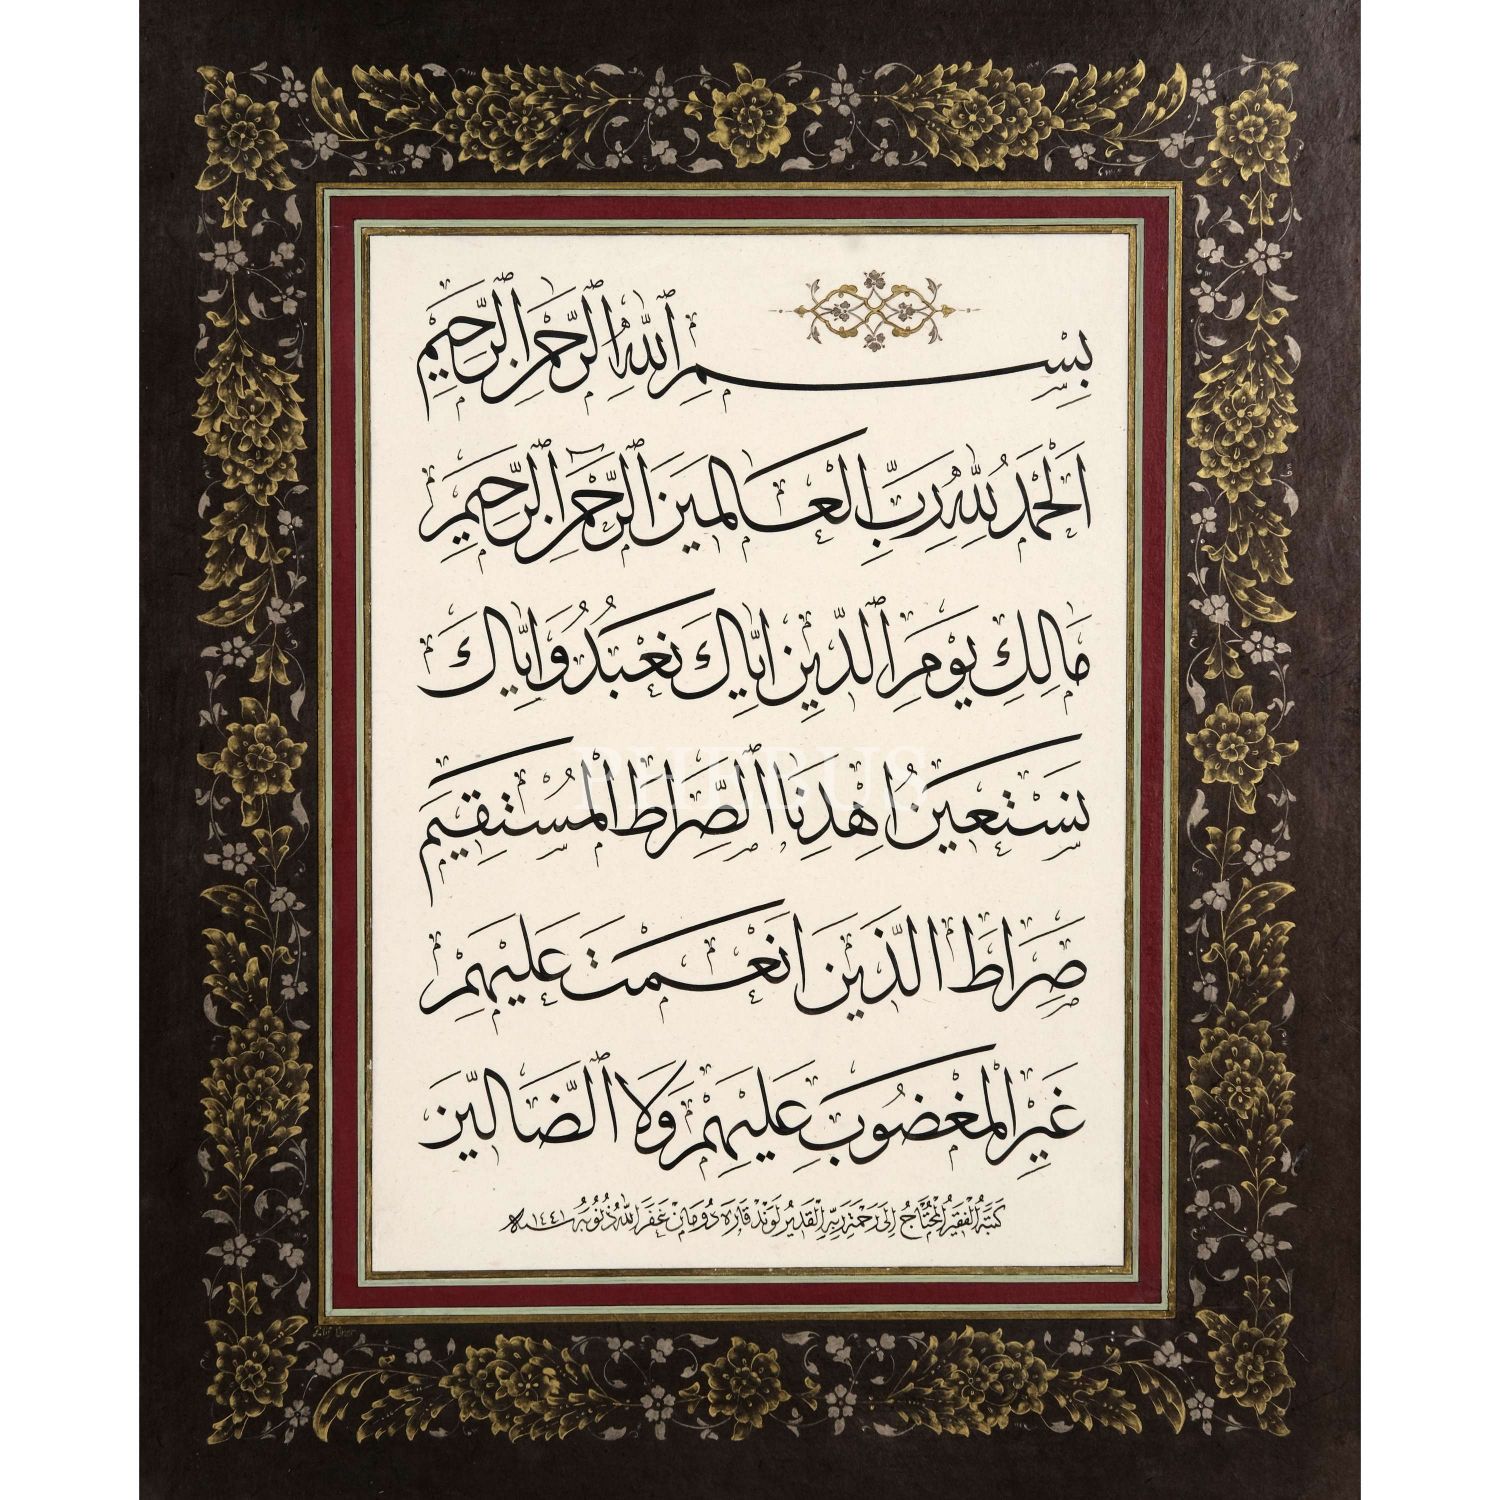 بِسْمِ ٱللّٰهِ ٱلرَّحْمٰنِ ٱلرَّحِيمِ
اَلْحَمْدُ لِلّٰهِ رَبِّ الْعَالَمِينَ ٱلرَّحْمٰنِ ٱلرَّحِيمِ
مَالِكِ يَوْمِ ٱلدِّينِ اِيَّاكَ نَعْبُدُ وَاِيَّاكَ
نَسْتَعِينُ اِهْدِنَا ٱلصِّرَاطَ الْمُسْتَقِيمَ
صِرَاطَ الَّذِينَ اَنْعَمْتَ عَلَيْهِمْ
غَيْرِ الْمَغْضُوبِ عَلَيْهِمْ وَلَا ٱلضَّالِّينَ
كَتَبَهُ الْفَقِيرُ الْمُحْتَاجُ اِلَى رَحْمَةِ رَبِّهِ الْقَدِيرِ لَوَنْدْ قَارَه دُومَانْ غَفَرَ اللّٰهُ ذُنُوبَهُ سنه ١٤٤١
PHEBUS
Elif